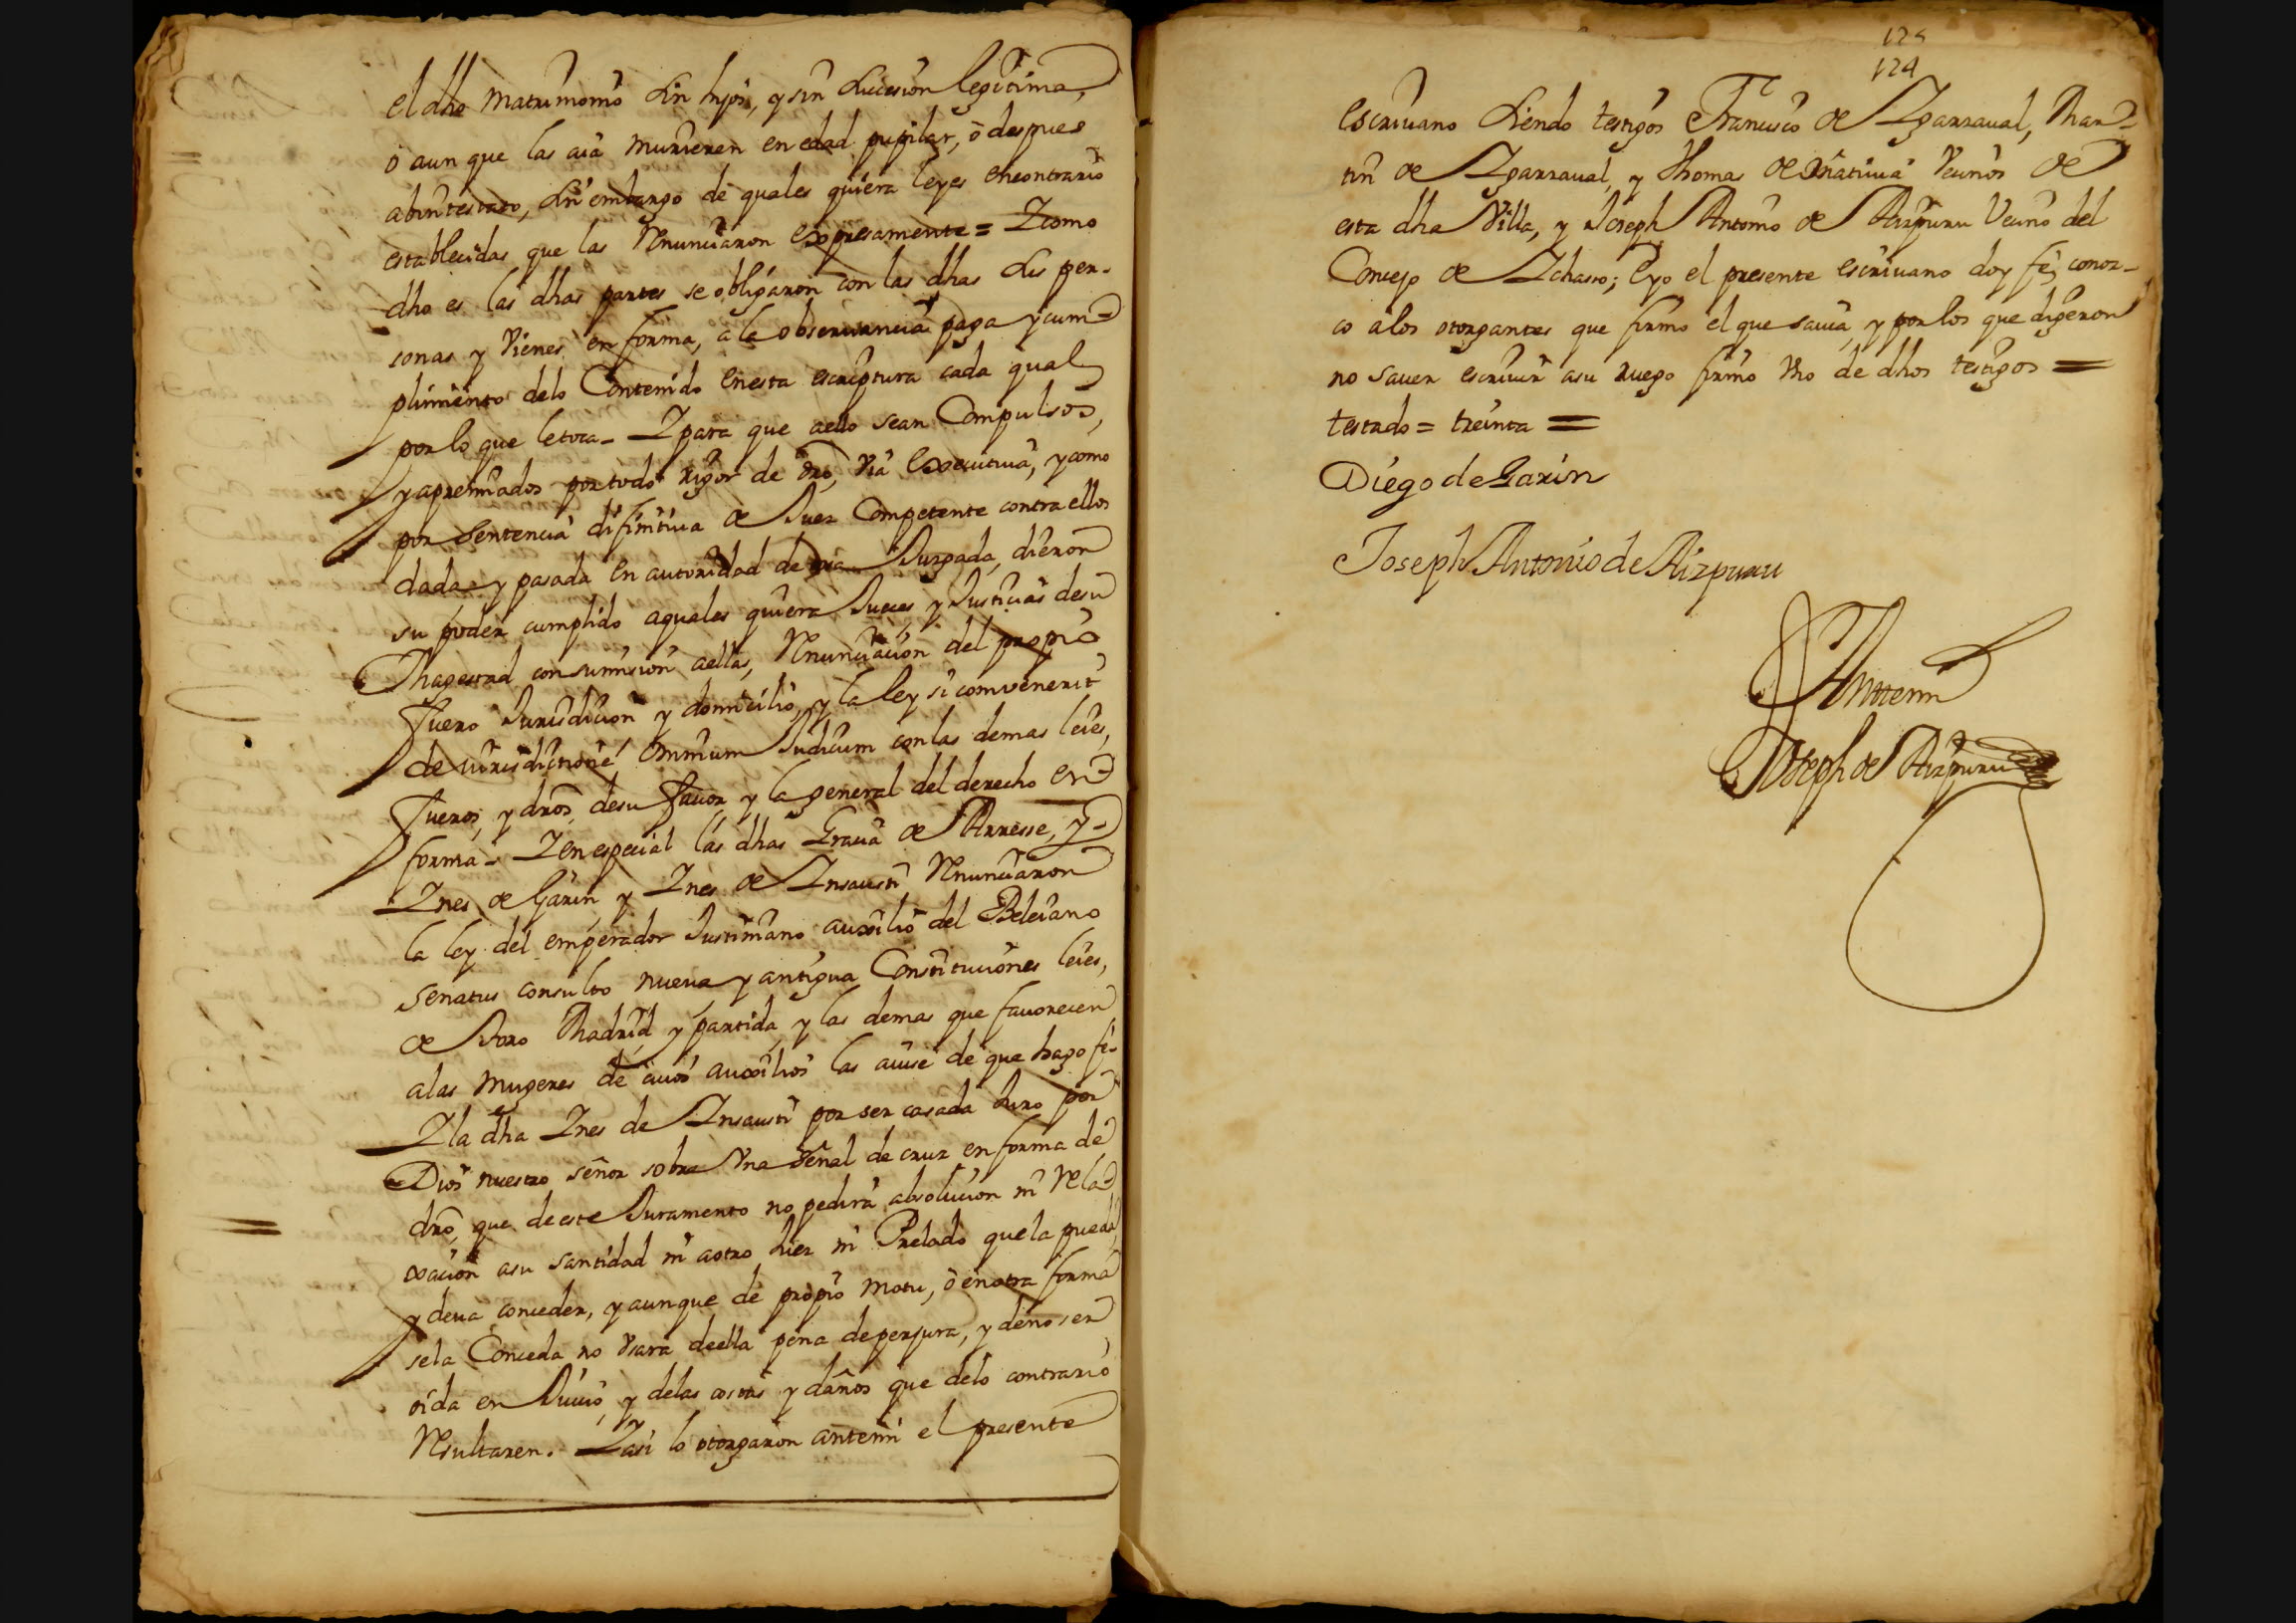 el dho matrimonio sin hijos, y sin sucesion legitima,
ò aun que las aia murieren en edad pupilar, ò despues
abintestato, sin embargo de quales quiera leyes encontrario
establecidas que las Renunciaron expresamente = Y como
dho es las dhas partes se obligaron con las dhas sus per-
sonas y Vienes en forma, a la observancia paga y cum-
plimiento delo Contenido en esta escriptura cada qual
por lo que le toca - Y para que aello sean Compulsos,
y apremiados por todo rigor de dro, Via executiva, y como
por Sentencia difinitiva de Juez Competente contra ellos
dada y pasada en autoridad de cosa Juzgada, dieron
su poder cumplido aquales quiera Jueces y Justicias desu
Magestad con sumision aellas, Renunciacion del propio
fuero Jurisdicion y domicilio, y la ley si convenerit
de iurisdictione omnium Judicum con las demas leies,
fueros, y dros, desu favor y la general del derecho en
forma - Y en especial las dhas Gracia de Arrese, y
Ynes de Garin, y Ynes de Ynsausti Renunciaron
la ley del emperador Justiniano auxilio del Beleiano
senatus consulto nueva y antigua Constituciones leies,
de Toro Madrid y partida, y las demas que favorecen
alas mugeres de cuios auxilios las avise de que hago fe-
Y la dha Ynes de Ynsausti por ser casada Juro por
Dios nuestro señor sobre Vna señal de cruz en forma de
dro, que de este Juramento no pedira absolucion ni Rela-
xacion asu santidad ni aotro Juez ni Prelado que la pueda,
y deva conceder, y aunque de propio motu, ò en otra forma
sela Conceda no Vsara deella pena deperjura, y deno ser
oida en Juicio, y delas costas y daños que delo contrario
Resultaren. Y asi lo otorgaron antemi el presente
125
124
escrivano siendo testigos Francisco de Yzarraval, Mar-
tin de Yzarraval, y Thomas de Vecinos de
esta dha Villa, y Joseph Antonio de Aizpuru Vecino del
Concejo de Ychaso; e yo el presente escrivano doy fe, conoz-
co alos otorgantes que firmo el que savia, y por los que digeron
no saver escrivir asu ruego firmo Vno de dhos testigos =
testado = treinta =
Diego de Garin
Joseph Antonio de Aizpuru
Antemi
Joseph de Aizpuru